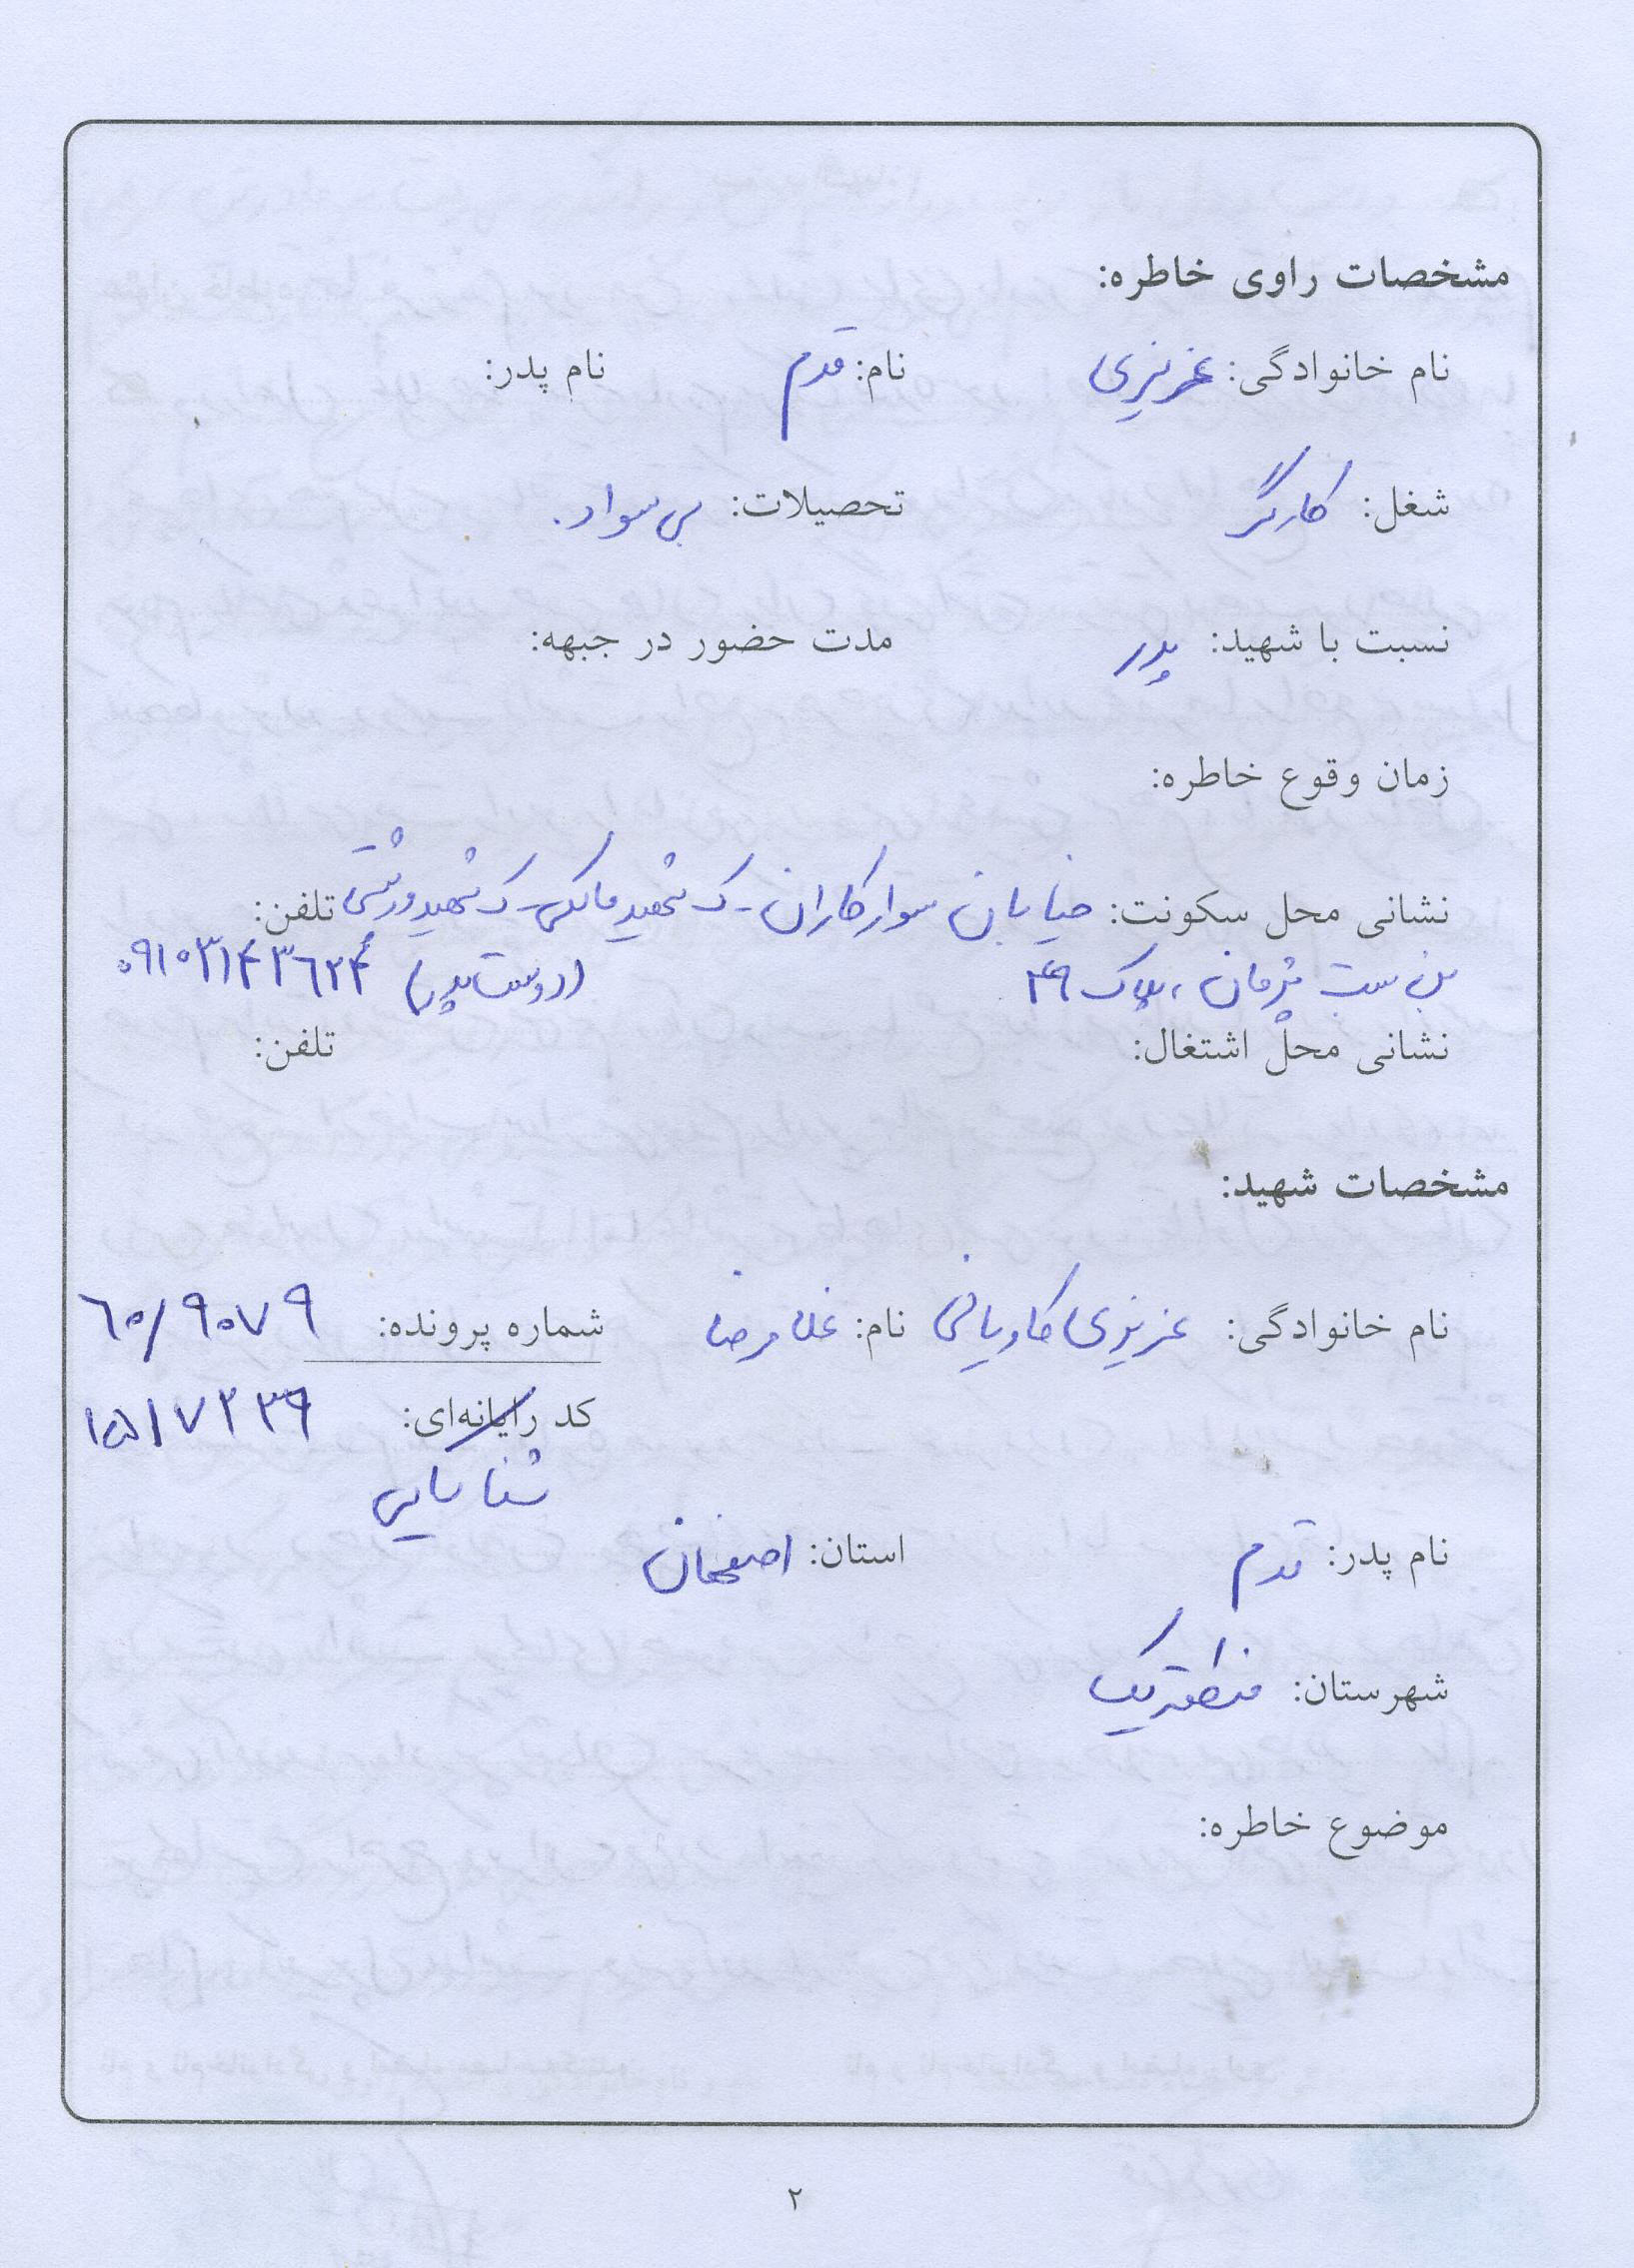 مشخصات راوی خاطره:
نام خانوادگی: عزیزی نام: قدم نام پدر:
شغل: کارگر تحصیلات: بی سواد.
نسبت با شهید: پدر مدت حضور در جبهه:
زمان وقوع خاطره:
نشانی محل سکونت: خیابان سوارکاران - ک شهید مالکی - ک شهید تلفن:
بن بست ، پلاک ۴۹ (دوست پدر) ۰۹۱۰۳۱۴۳۶۲۴
نشانی محل اشتغال: تلفن:
مشخصات شهید:
نام خانوادگی: عزیزی نام: غلامرضا شماره پرونده: ۶۰/۹۰۷۹
کد رایانه‌ای: ۱۵۱۷۲۳۹
شناسایی
نام پدر: قدم استان: اصفهان
شهرستان: منطقه یک
موضوع خاطره:
۲